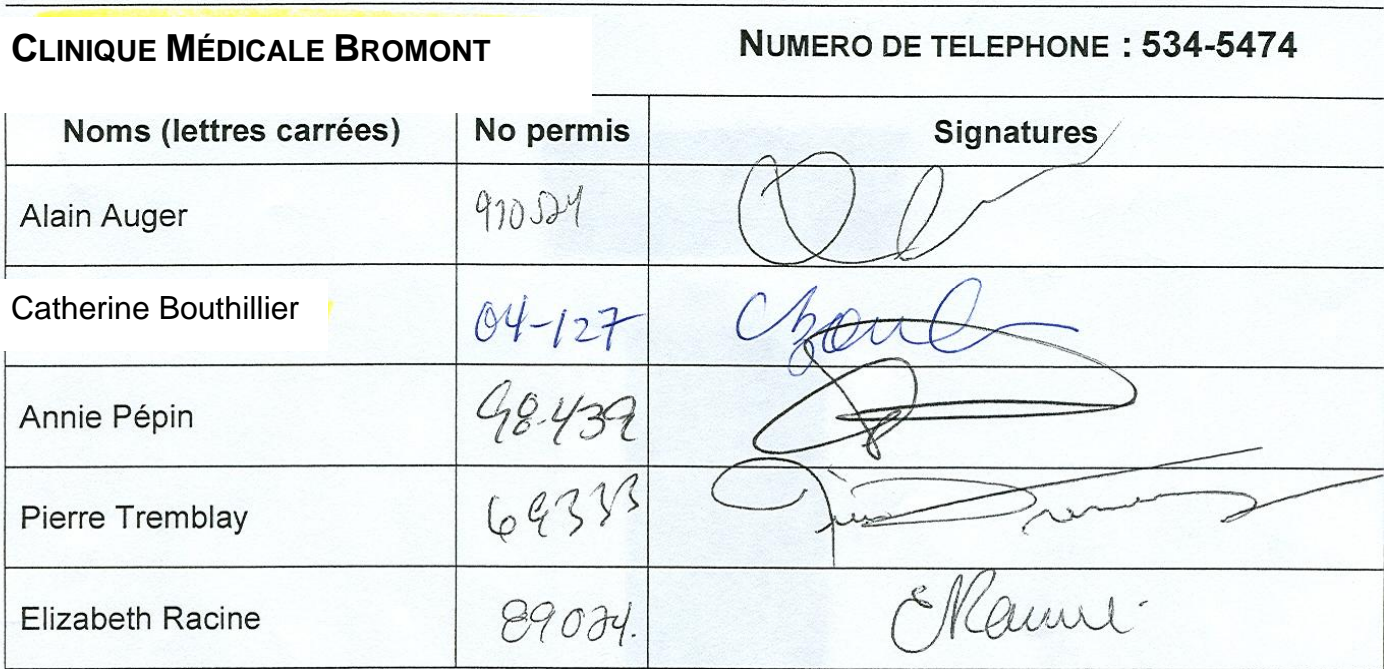 CLINIQUE MÉDICALE BROMONT NUMERO DE TELEPHONE : 534-5474
Noms (lettres carrées) No permis Signatures
Alain Auger
Catherine Bouthillier 04-127
Annie Pépin 98-439
Pierre Tremblay 69333
Elizabeth Racine 89024. ERacine